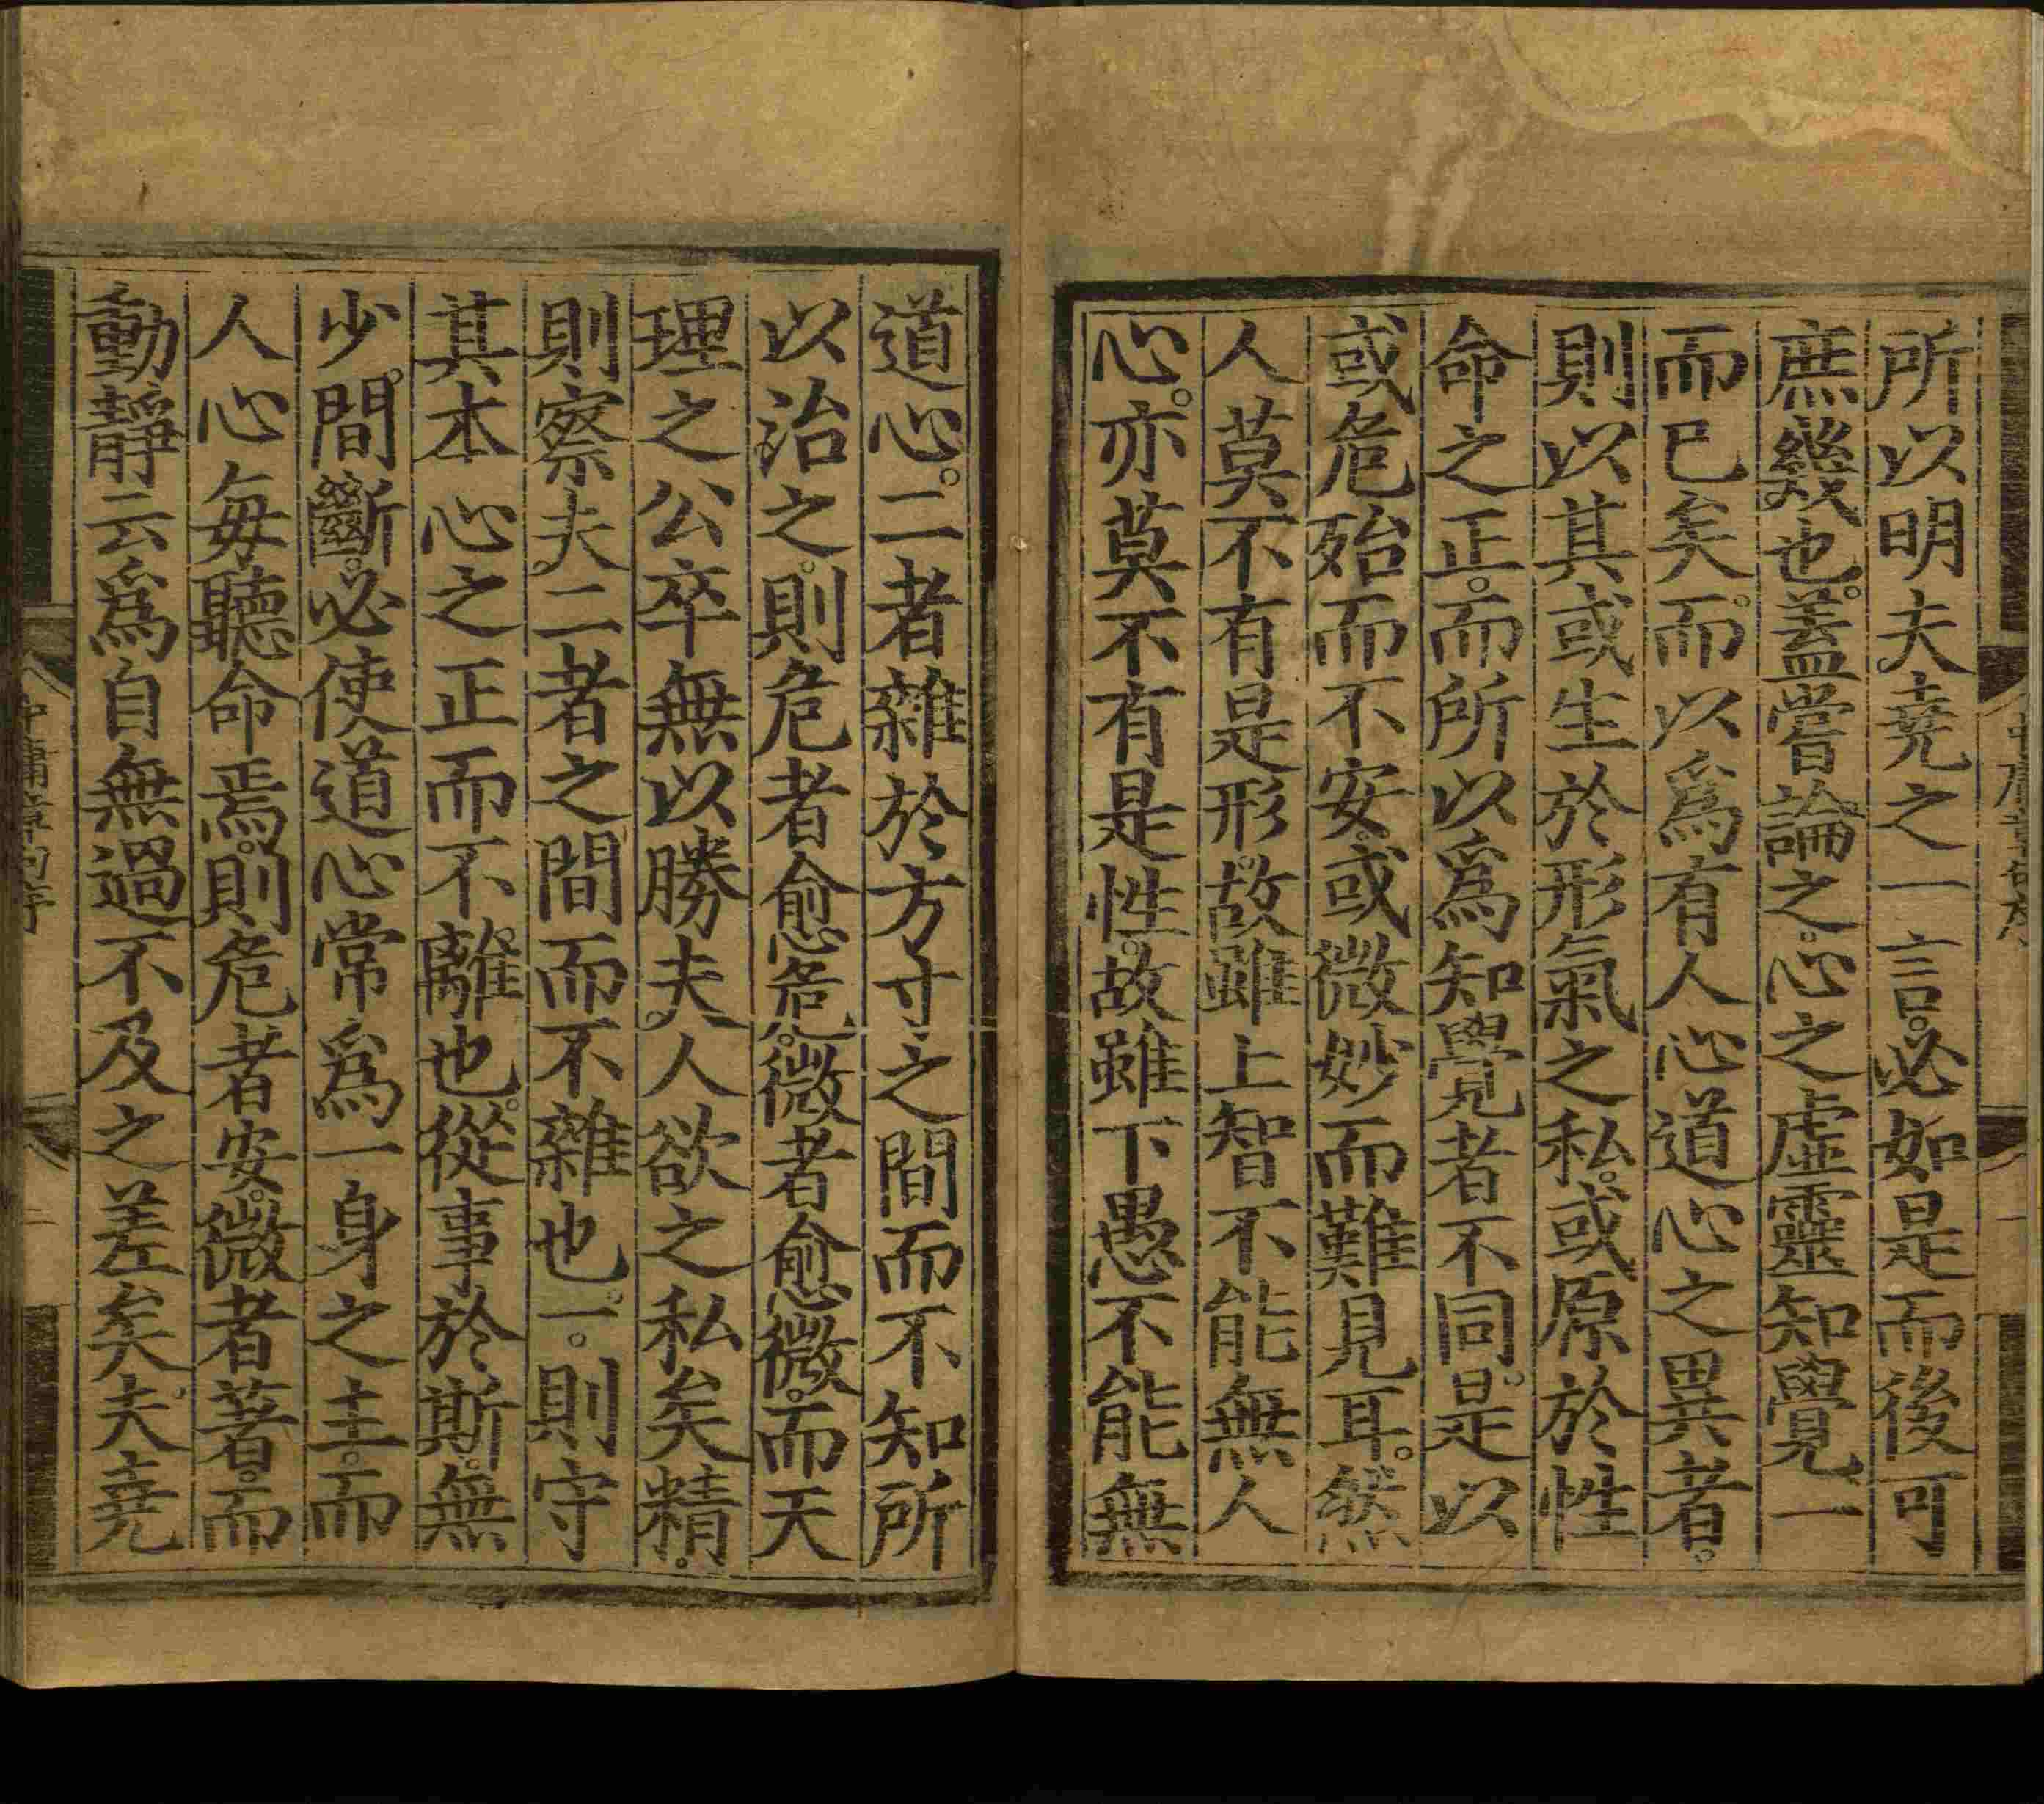 所以明夫堯之一言。必如是而後可
庶幾也。蓋嘗論之。心之虛靈知覺一
而已矣。而以爲有人心道心之異者。
則以其或生於形氣之私。或原於性
命之正。而所以爲知覺者不同。是以
或危殆而不安。或微妙而難見耳。然
人莫不有是形。故雖上智不能無人
心。亦莫不有是性。故雖下愚不能無
道心。二者雜於方寸之間而不知所
以治之。則危者愈危。微者愈微。而天
理之公卒無以勝夫人欲之私矣精。
則察夫二者之間而不雜也。一。則守
其本心之正而不離也。從事於斯。無
少間斷。必使道心常爲一身之主。而
人心每聽命焉。則危者安。微者著。而
動靜云爲自無過不及之差矣夫堯
中庸章句序
二